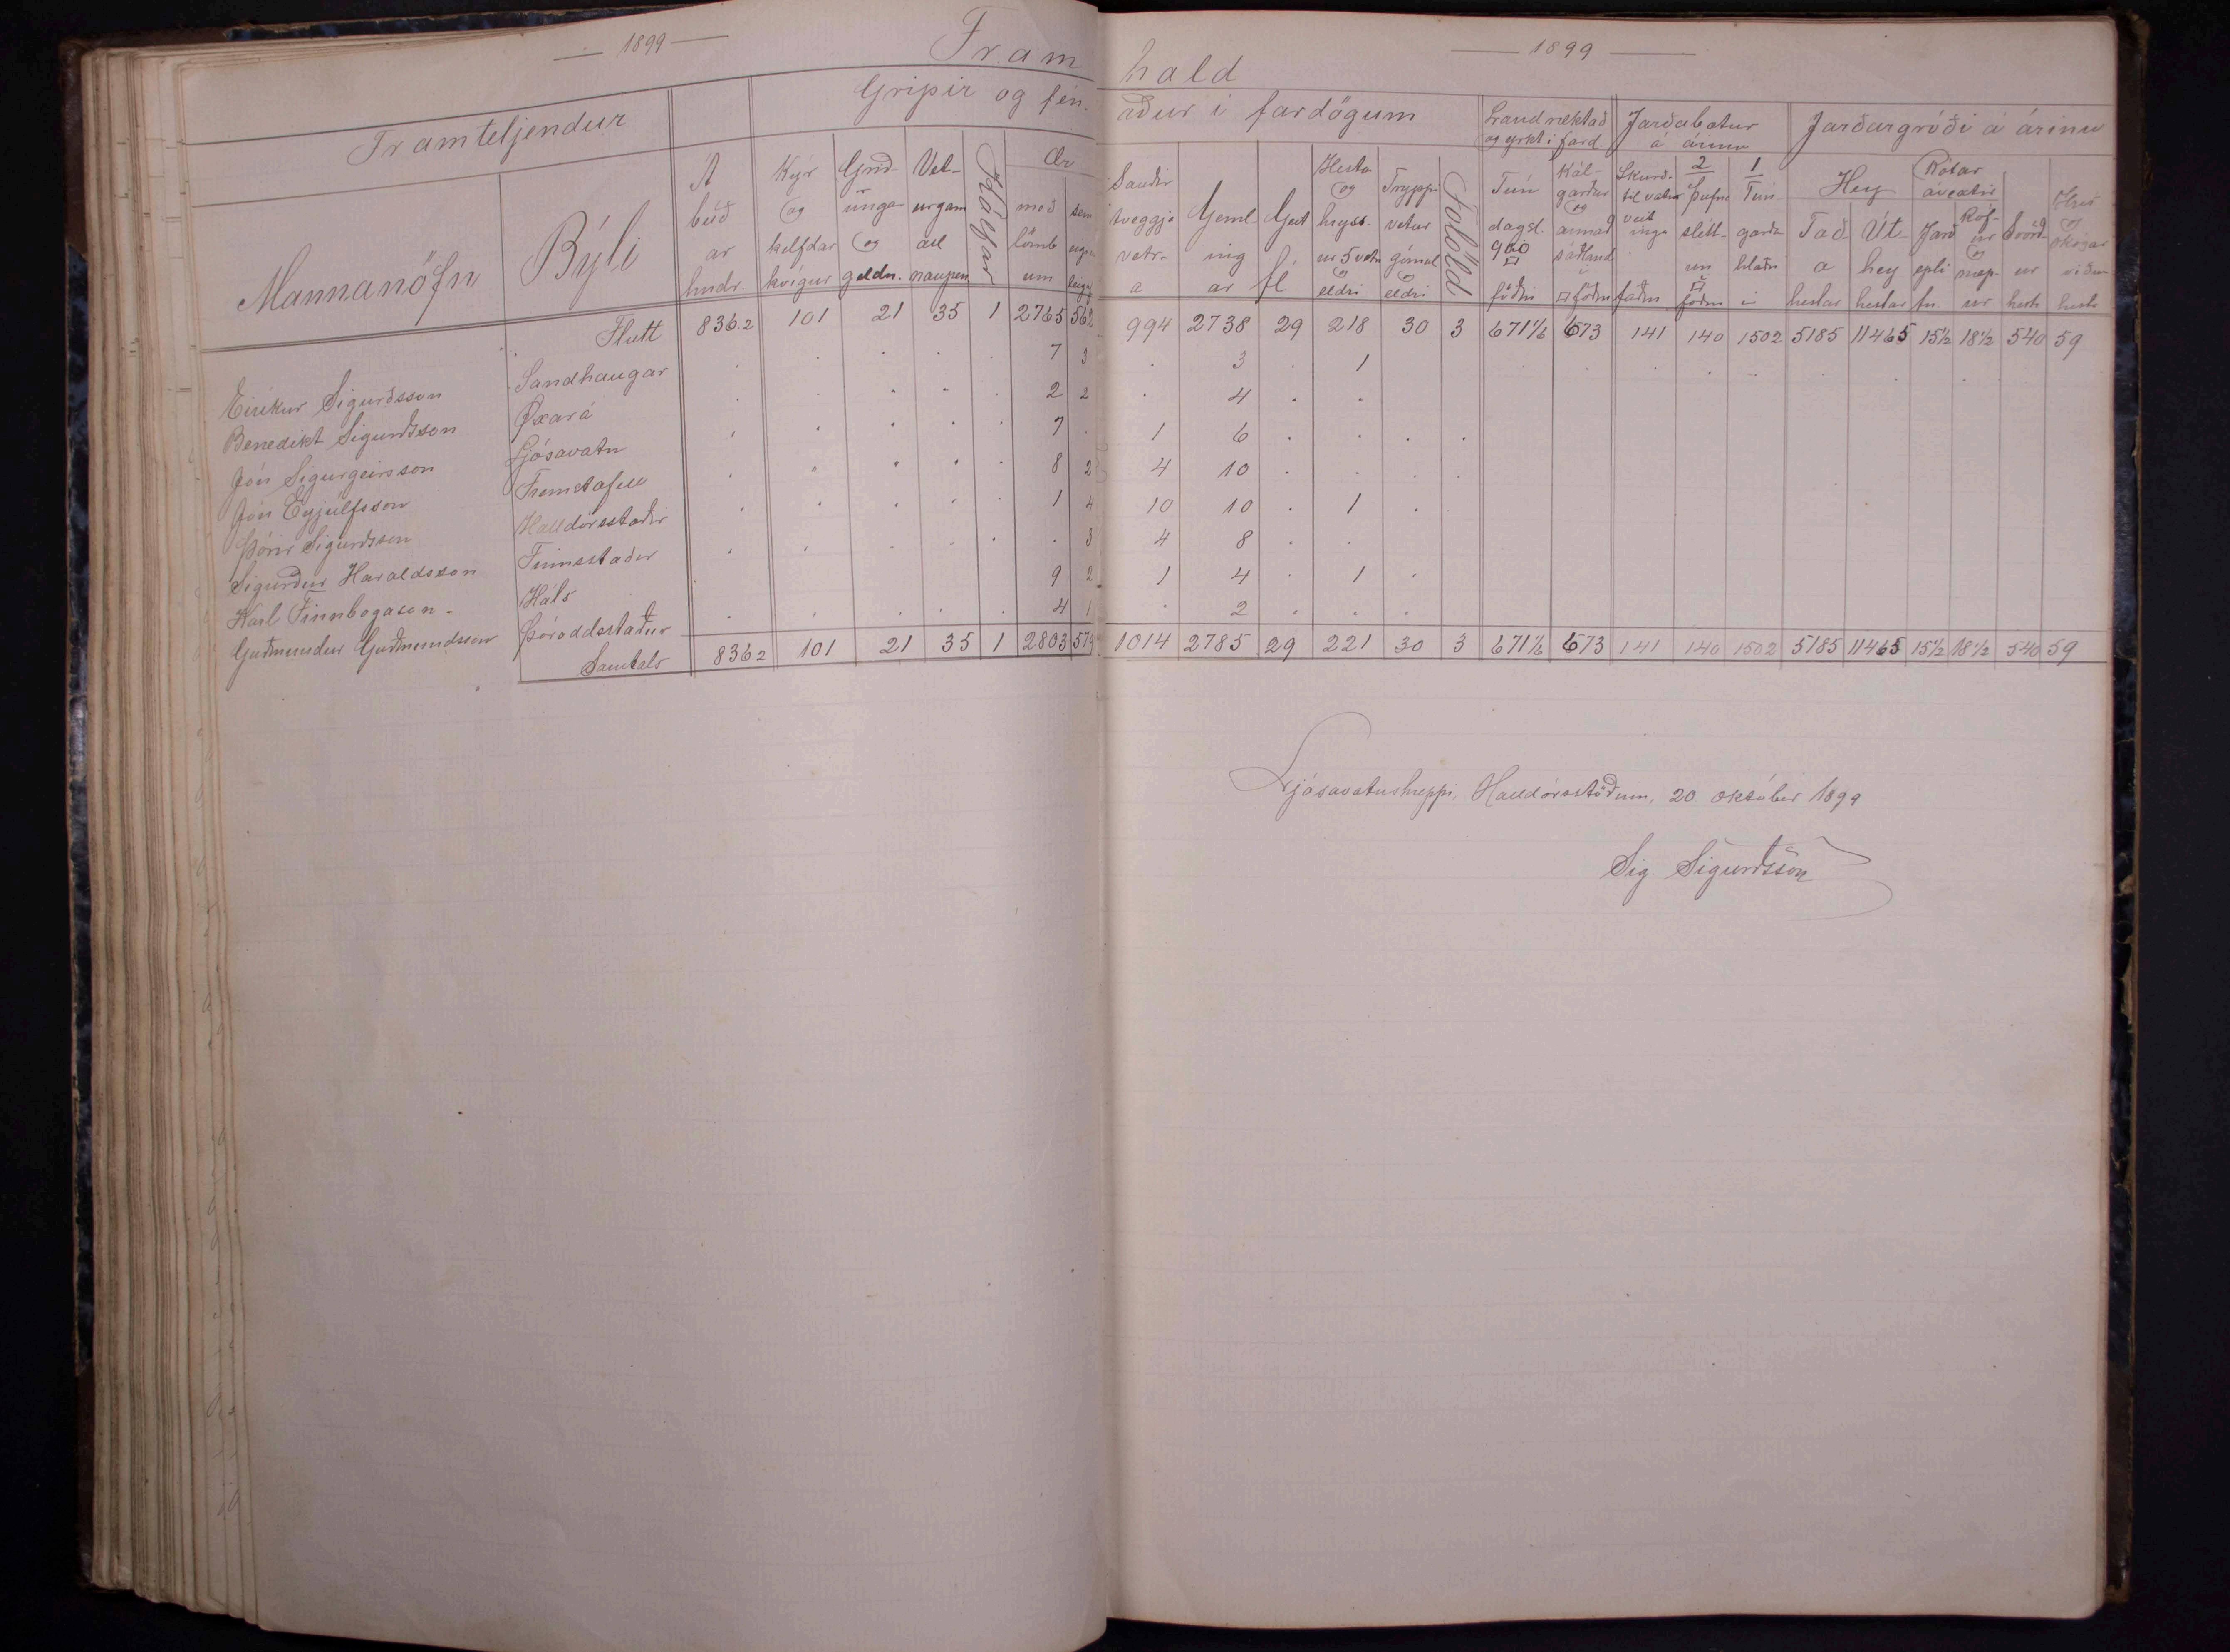 — 1899 — Fram
hald — 1899 —
Framteljendur Gripir og fén.
aður í fardögum Land ræktað og yrkt í fard. Jarðabætur á árinu Jarðargróði á árinu
Mannanöfn Býli Á búð ar hndr. Kýr og kelfdar kvígur Grið- unga og geldn. Vet- urgam all naupen. Kálfar Ær með lömb um sem
Sauðir tveggja vetr- a Geml- ing ar Geit fé Hesta og hryss- ur 5 vetr og eldri Trypp- vetur gömul og eldri Folöld Tún dagsl. 900 □ föðm Kál- garðar og annað sáðland □ föðm Skurð. til vatns veit inga faðm 2 Þúfna slétt- un □ föðm 1 Tún- garða hlaðn i Hey Tað- a hestar Út- hey hestar Rótar ávextir Jarð epli tn. Róf- ur og næp- ur Svörð- ur hestr Hrís og skógar viður hestr
Flutt 836.2 101 21 35 1 2765 562 994 2738 29 218 30 3 671 1/6 673 141 140 1502 5185 11465 15½ 18½ 540 59
Eiríkur Sigurðsson Sandhaugar . . . . . 7 3 . 3 . 1
Benedikt Sigurðsson Öxará . . . . . 2 2 . 4 . .
Jón Sigurgeirsson Ljósavatn . . . . . 7 . 1 6 . . . .
Jón Eyjúlfsson Fremstafell . . . . . 8 2 4 10 . . . .
Þórir Sigurðsson Halldórsstaðir . . . . . 1 4 10 10 . 1 .
Sigurður Haraldsson Finnsstaðir . . . . . . 3 4 8 . .
Karl Finnbogason - Háls . 9 2 1 4 . 1 .
Guðmundur Guðmundsson Þóroddsstaður . . . . . 4 1 . 2 . . .
Samtals 836.2 101 21 35 1 2803 579 1014 2785 29 221 30 3 671 1/6 673 141 140 1502 5185 11465 15½ 18½ 540 59
Ljósavatnshreppi, Halldórsstöðum, 20 október 1899
Sig. Sigurðsson